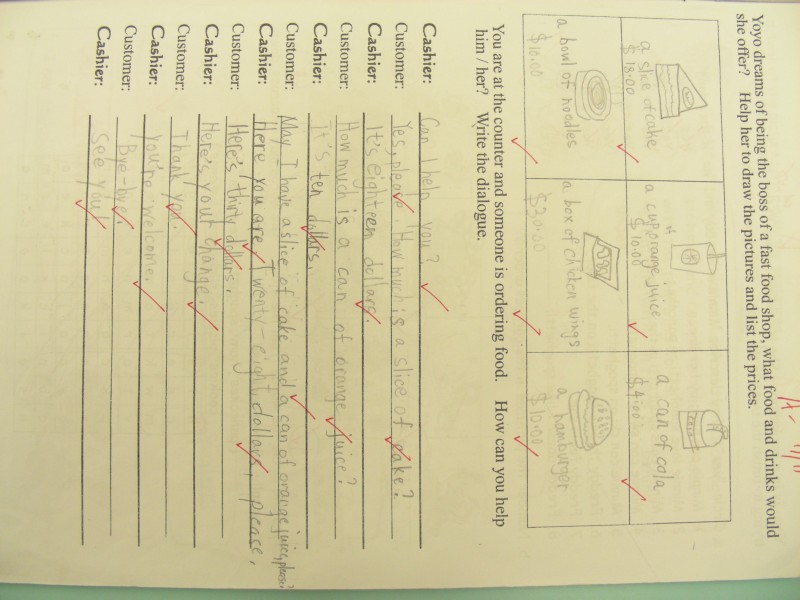 Yoyo dreams of being the boss of a fast food shop, what food and drinks would
she offer? Help her to draw the pictures and list the prices.
a slice of cake
$18.00
a cup of orange juice
$10.00
a can of cola
$4.00
a bowl of noodles
$10.00
a box of chicken wings
$30.00
a hamburger
$10.00
You are at the counter and someone is ordering food. How can you help
him / her? Write the dialogue.
Cashier: Can I help you?
Customer: Yes, please. How much is a slice of cake?
Cashier: It's eighteen dollars.
Customer: How much is a can of orange juice?
Cashier: It's ten dollars.
Customer: May I have a slice of cake and a can of orange juice, please?
Cashier: Here you are. Twenty-eight dollars, please.
Customer: Here's thirty dollars.
Cashier: Here's your change.
Customer: Thank you.
Cashier: You're welcome.
Customer: Bye-bye!
Cashier: See you!